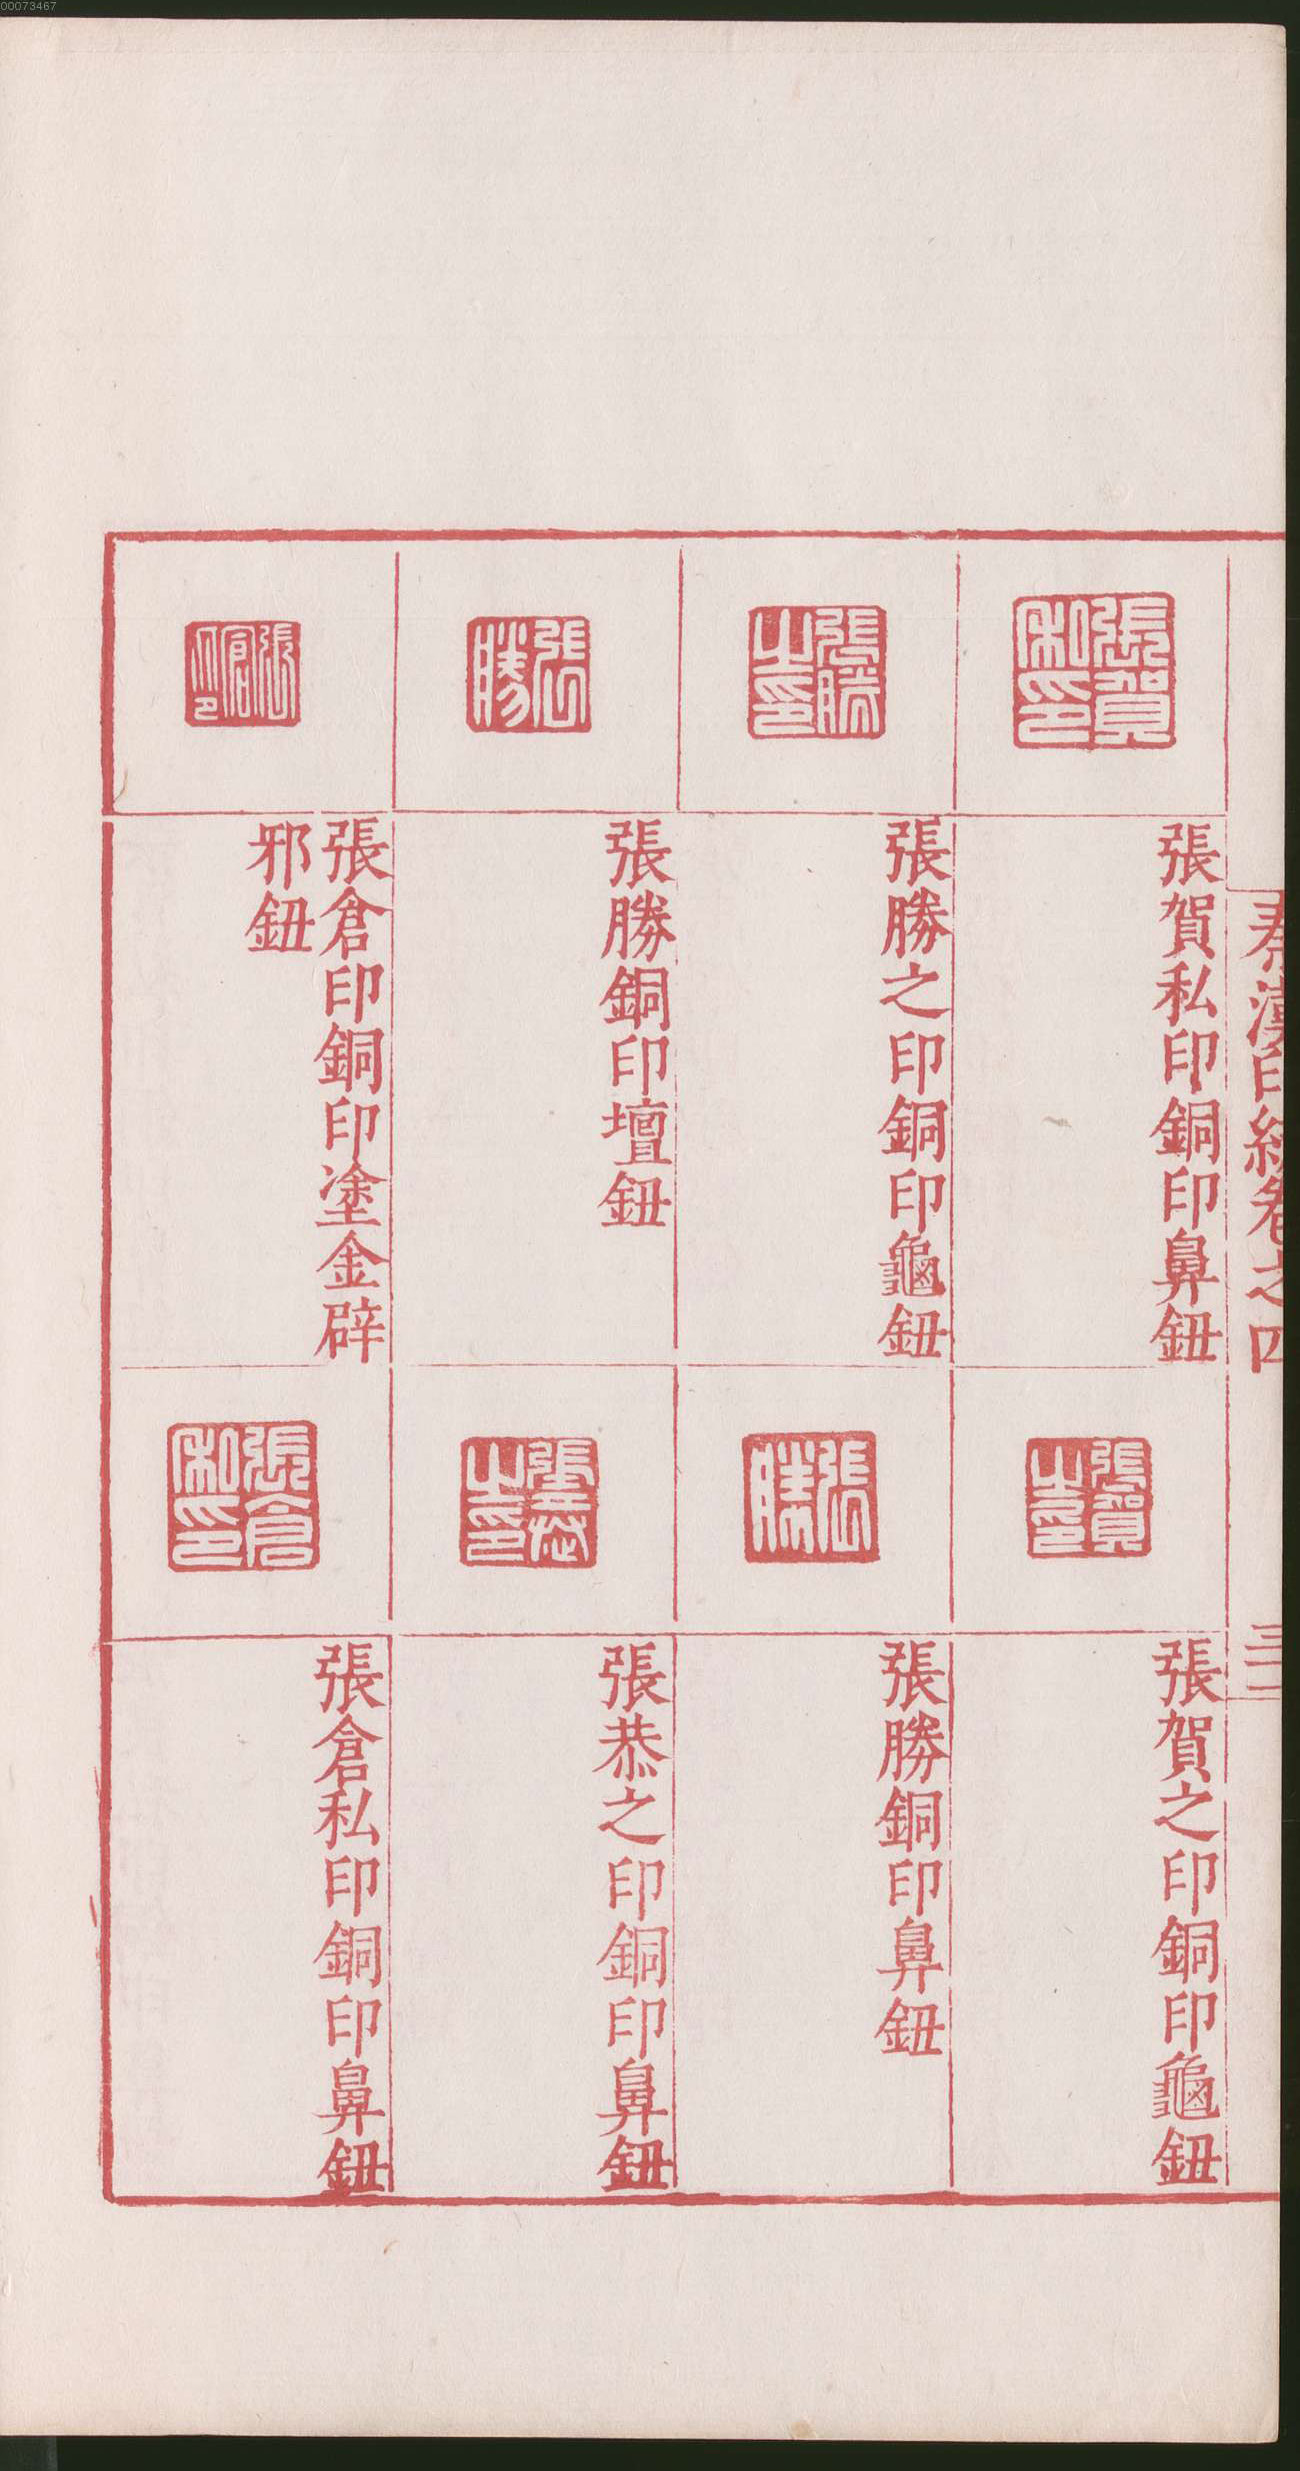 00073467
秦漢印統卷之四
三二
張賀私印
張賀私印銅印鼻鈕
張賀之印
張賀之印銅印龜鈕
張勝之印
張勝之印銅印龜鈕
張勝
張勝銅印鼻鈕
張勝
張勝銅印壇鈕
張恭之印
張恭之印銅印鼻鈕
張倉印
張倉印銅印塗金辟
邪鈕
張倉私印
張倉私印銅印鼻鈕